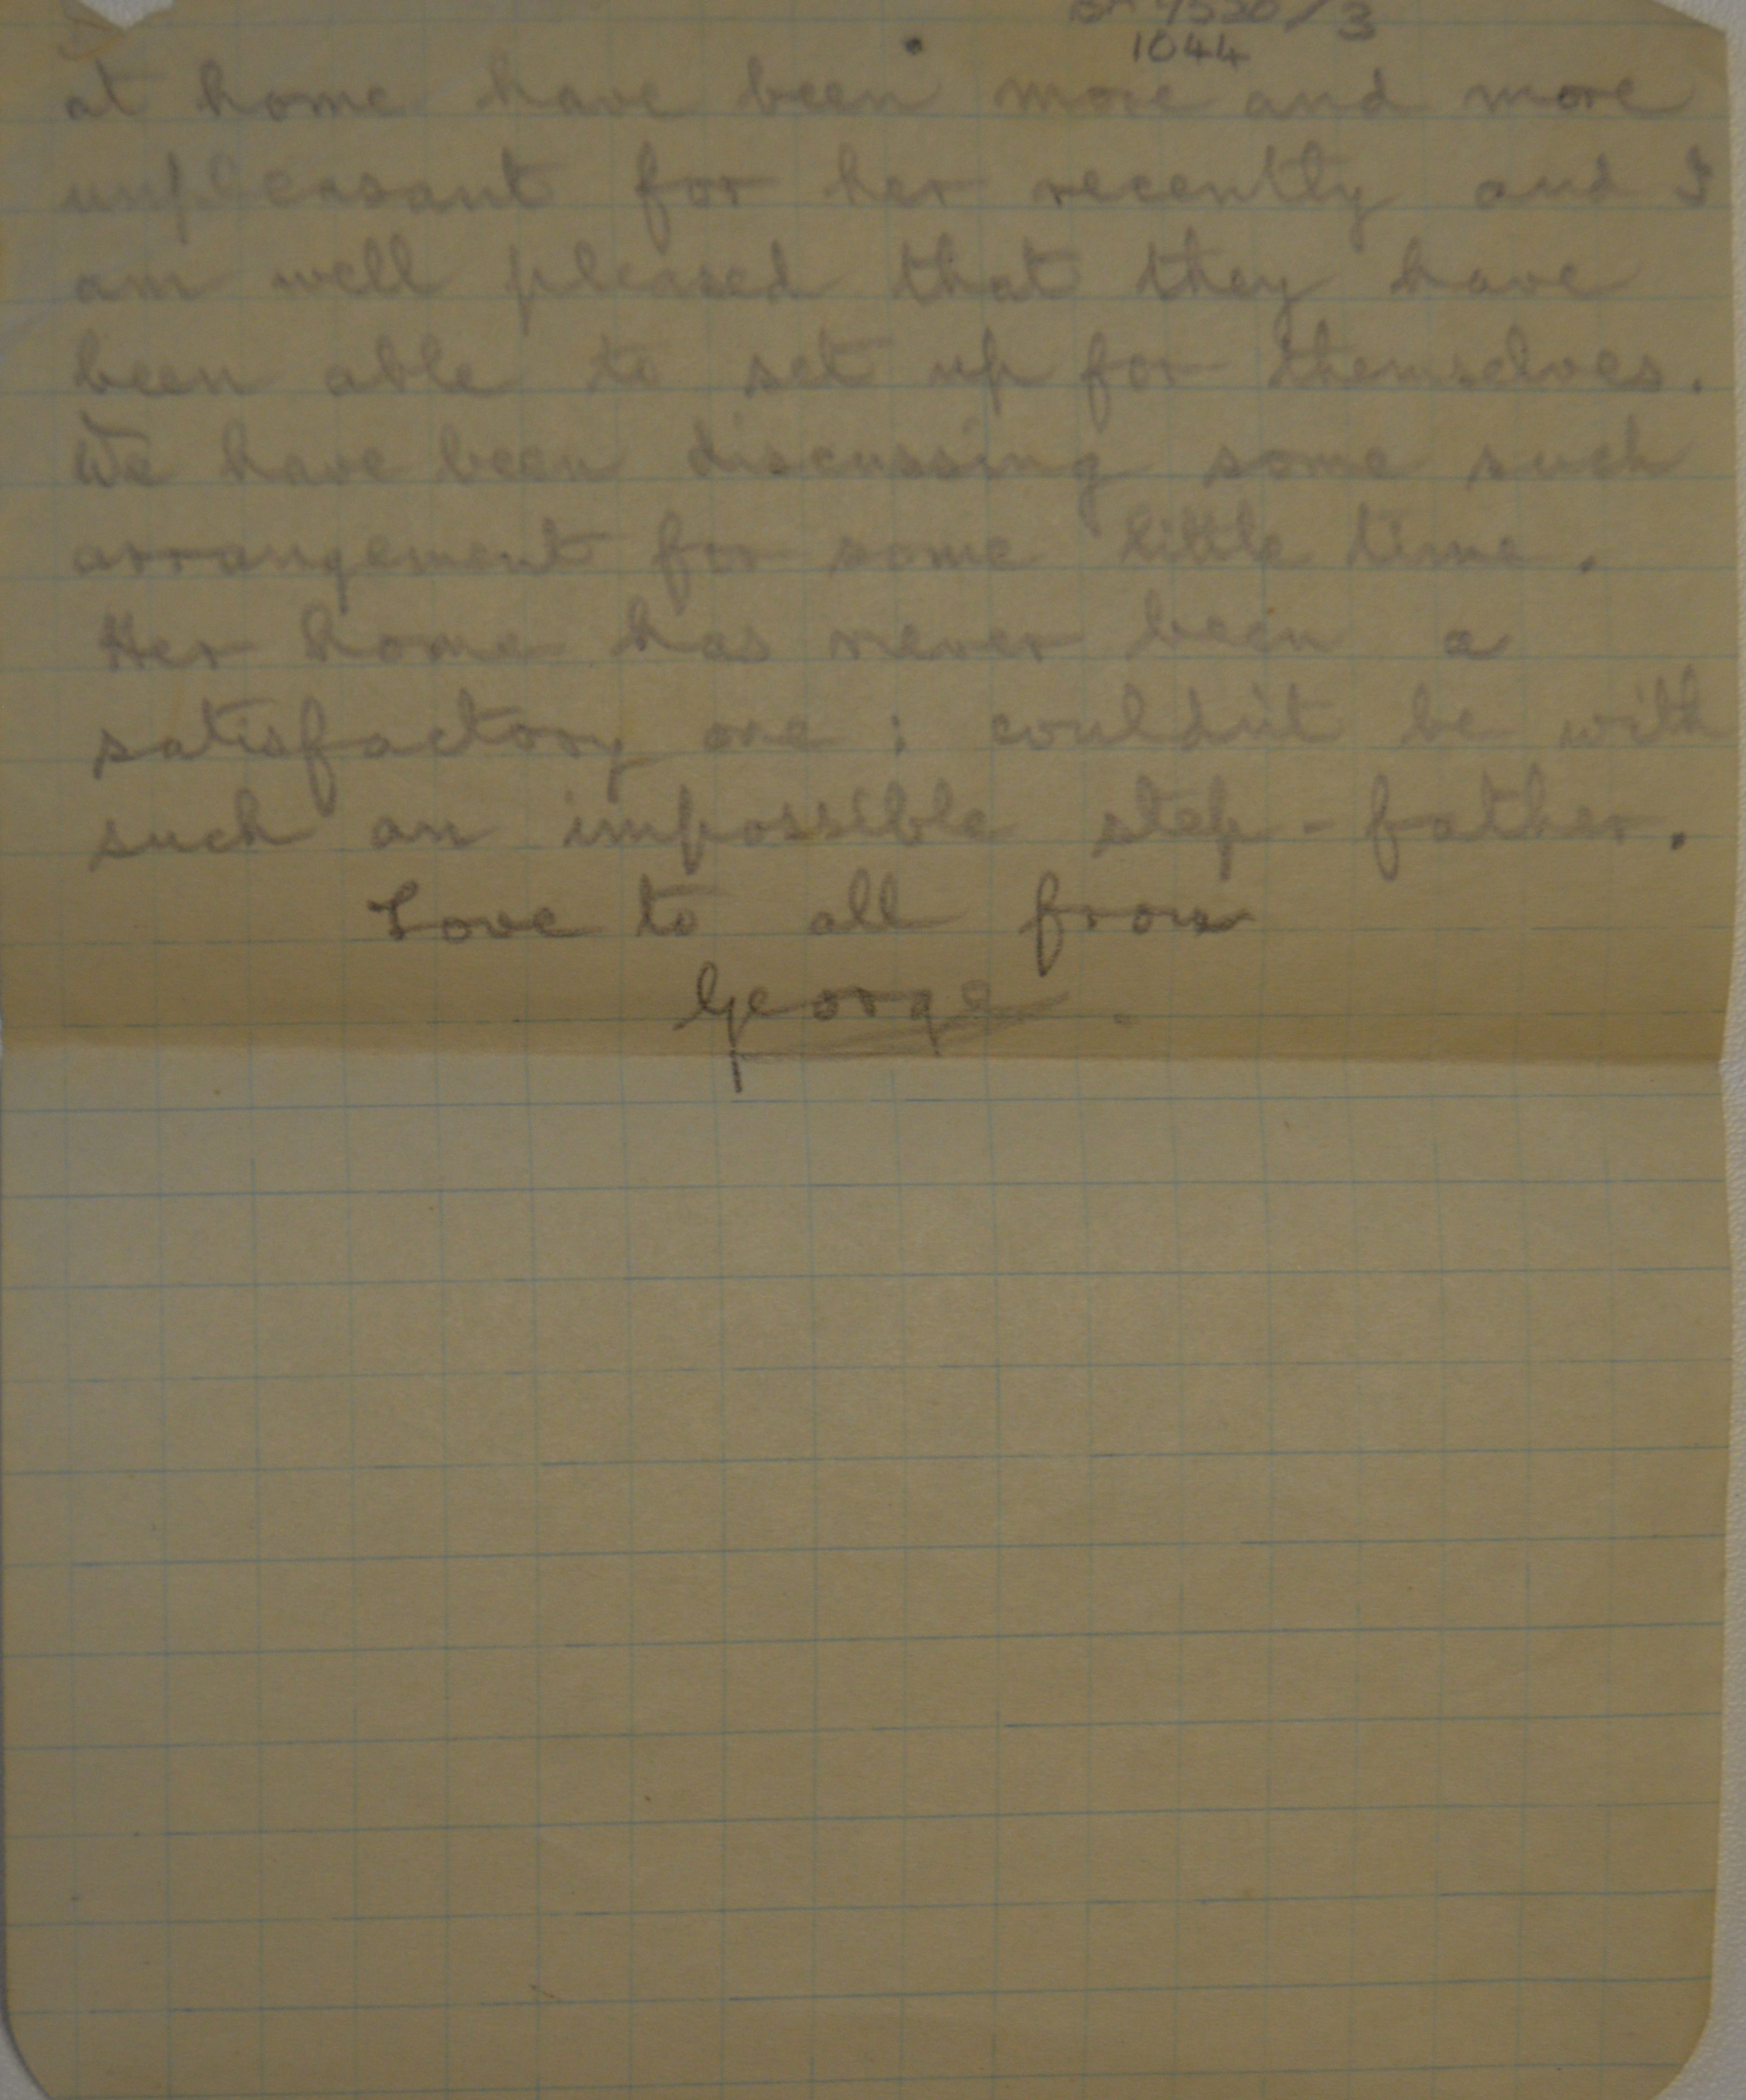 1044
at home have been more and more
unpleasant for her recently and I
am well pleased that they have
been able to set up for themselves.
We have been discussing some such
arrangement for some little time.
Her home has never been a
satisfactory one : couldn't be with
such an impossible step-father.
Love to all from
George.